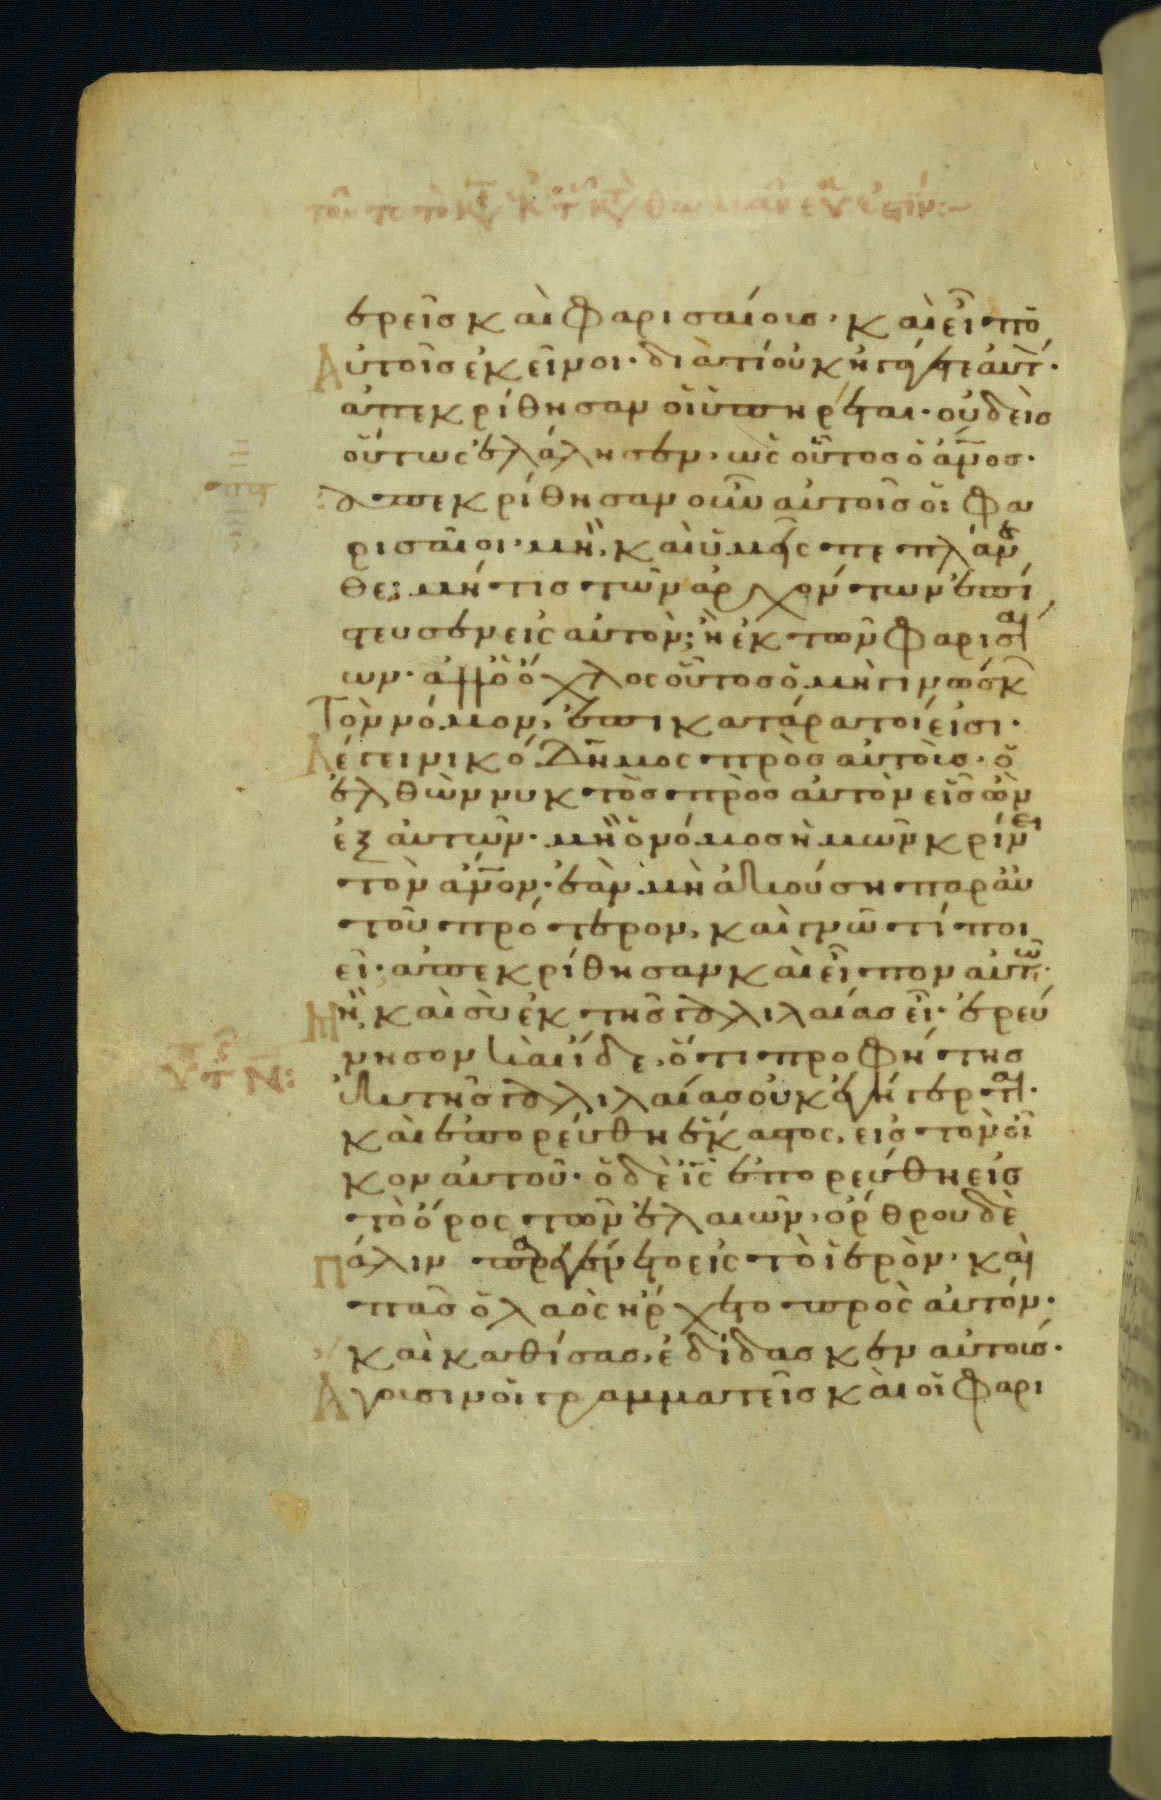 ερεῖς καὶ φαρισαίους· καὶ εἶπο̅
Αὐτοῖς ἐκεῖνοι· διὰ τί οὐκ ἠγάγετε αὐτ·
ἀπεκρίθησαν οἱ ὑπηρέται· οὐδεὶς
οὕτως ἐλάλησεν, ὡς οὗτος ὁ ἄνος·
ἀπεκρίθησαν οὖν αὐτοῖς οἱ φα
ρισαῖοι· μὴ καὶ ὑμεῖς πεπλάνη
θε; μή τις τῶν ἀρχόντων ἐπί
στευσεν εἰς αὐτὸν; ἢ ἐκ τῶν φαρισαί
ων· ἀλλ' ὁ ὄχλος οὗτος ὁ μὴ γινώσκ
Τὸν νόμον, ἐπικατάρατοί εἰσι·
Λέγει νικόδημος πρὸς αὐτοὺς· ὁ
ἐλθὼν νυκτὸς πρὸς αὐτὸν εἷς ὢν
ἐξ αὐτῶν· μὴ ὁ νόμος ἡμῶν κρίνει
τὸν ἄνον· ἐὰν μὴ ἀκούση παρ' αὐ
τοῦ πρότερον, καὶ γνῶ τί ποι
εῖ· ἀπεκρίθησαν καὶ εἶπον αὐτῶ·
Μὴ καὶ σὺ ἐκ τῆς γαλιλαίας εἶ· ἐρεύ
νησον καὶ ἴδε, ὅτι προφήτης
ἐκ τῆς γαλιλαίας οὐκ ἐγήγερται·
καὶ ἐπορεύθη ἕκαστος, εἰς τὸν οἶ
κον αὐτοῦ· ὁ δὲ ις ἐπορεύθη εἰς
τὸ ὄρος τῶν ἐλαιῶν, ὄρθρου δὲ
Πάλιν παρεγένετο εἰς τὸ ἱερὸν, καὶ
πᾶς ὁ λαὸς ἤρχετο πρὸς αὐτόν·
καὶ καθίσας, ἐδίδασκεν αὐτούς·
Ἄγουσιν οἱ γραμματεῖς καὶ οἱ φαρι